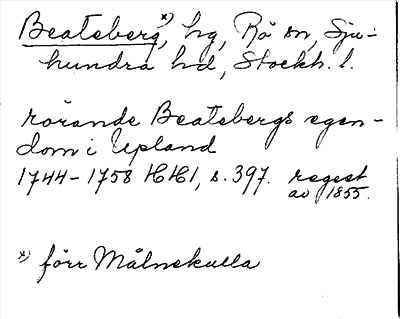 Beateberg,*) hg, Rö sn, Sju-
hundra hd, Stockh. l.
rörande Beatebergs egen-
dom i Upland
1744-1758 HH1, s. 397. regest
av 1855.
*) förr Målnskulla